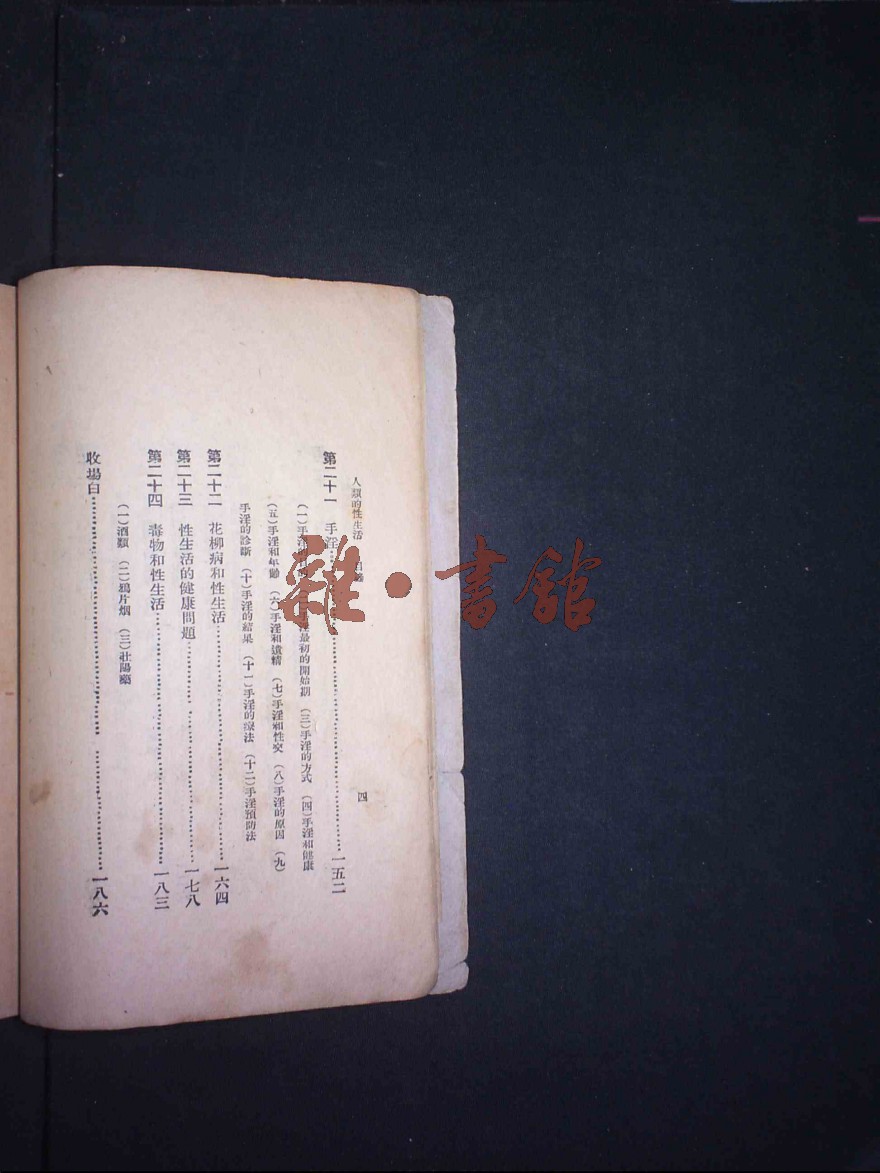 人類的性生活 目錄 四
第二十一 手淫……一五二
(一)手淫 手淫最初的開始期 (三)手淫的方式 (四)手淫和健康
(五)手淫和年齡 (六)手淫和遺精 (七)手淫和性交 (八)手淫的原因 (九)
手淫的診斷 (十)手淫的結果 (十一)手淫的療法 (十二)手淫預防法
第二十二 花柳病和性生活……一六四
第二十三 性生活的健康問題……一七八
第二十四 毒物和性生活……一八三
(一)酒類 (二)鴉片烟 (三)壯陽藥
收場白……一八六
雜·書館